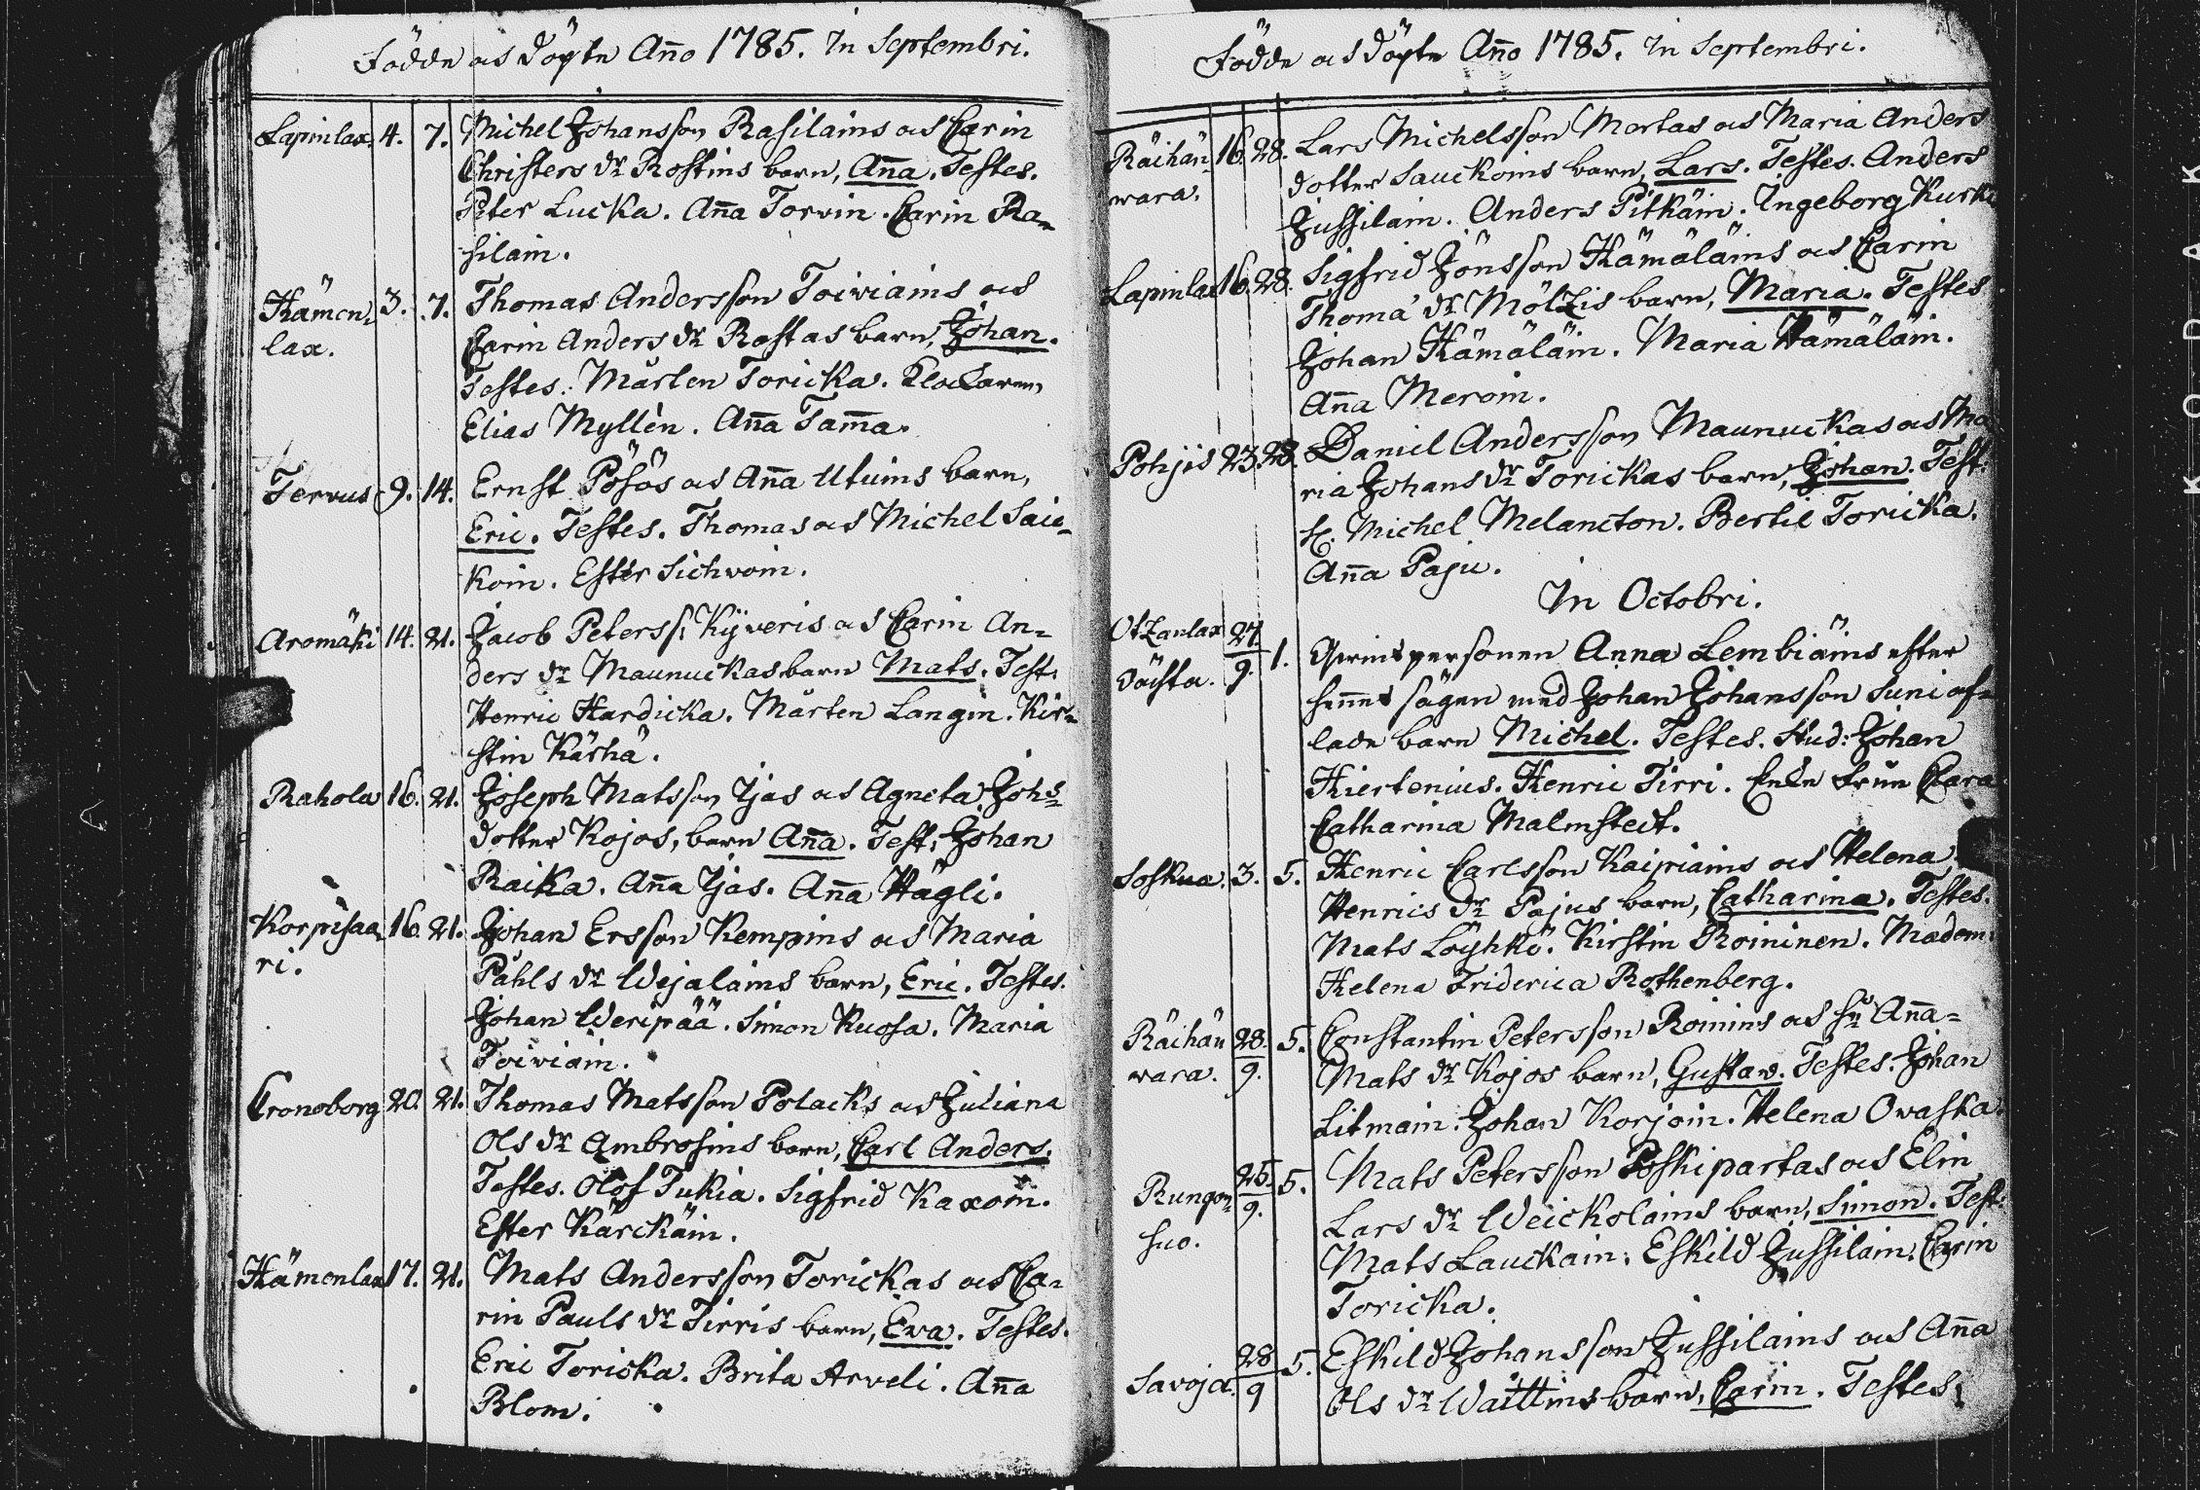 Födde och Döpte Ano 1785. In Septembri.
Lapinlax. 4. 7. Michel Johansson Rasilains och Carin
Christers dr Rostins barn, Aña. Testes.
Peter Lucka. Aña Torvin. Carin Ra-
silain.
Hämen- 3. 7. Thomas Andersson Toiviains och
lax. Carin Anders dr Rastas barn, Johan.
Testes: Mårten Toricka. Klockaren
Elias Myllén. Aña Tama.
Tervus 9. 14. Ernst Pösös och Aña Utuins barn,
Eric. Testes. Thomas och Michel Sau-
koin. Ester Sichvoin.
Aromäki 14. 21. Jacob Peterss: Kÿveris och Carin An-
ders dr Maunuckas barn Mats. Test:
Henric Hardicka. Mårten Langin. Kir-
stin Kärhä.
Rahola 16. 21. Joseph Matsson Ijas och Agneta Johs
dotter Kojos, barn Aña. Test: Johan
Raika. Aña Ijas. Aña Hägli.
Korpisaa- 16. 21. Johan Ersson Kempins och Maria
ri. Påhls dr Wejalains barn, Eric. Testes.
Johan Weripää. Simon Kuosa. Maria
Toiviain.
Cronoborg 20. 21. Thomas Matsson Polacks och Juliana
Ols dr Ambrosins barn, Carl Anders.
Testes. Olof Tukia. Sigfrid Kaxoin.
Ester Kärckäin.
Hämenlax 17. 21. Mats Andersson Torickas och Ca-
rin Pauls dr Tirris barn, Eva. Testes.
Eric Toricka. Brita Arveli. Aña
Blom.
Födde och Döpte Ano 1785. In Septembri.
Räihän- 16. 28. Lars Michelsson Martas och Maria Anders
wara. dotter Sauckoins barn, Lars. Testes. Anders
Jussilain. Anders Pitkäin. Ingeborg Kurki
Lapinlax 16. 28. Sigfrid Jönsson Hämäläins och Carin
Thomæ dr Möltzis barn, Maria. Testes
Johan Hämäläin. Maria Hämäläin.
Aña Meroin.
Pohjis 23. 28. Daniel Andersson Maunuckas och Ma
ria Johans dr Torickas barn, Johan. Test:
H. Michel Melancton. Bertil Toricka.
Aña Paju.
In Octobri.
Otzanlax 27/9. 1. Qvinspersonen Anna Lembiäins efter
Dächta. hennes sägen med Johan Johansson Suni af-
lade barn Michel. Testes. Stud: Johan
Hiertenius. Henric Tirri. Enke Frun Clara
Catharina Malmstedt.
Soskua. 3. 5. Henric Carlsson Kaipiains och Helena
Henrics dr Pajus barn, Catharina. Testes.
Mats Löyhkö. Kirstin Roininen. Madem:
Helena Friderica Rothenberg.
Räihän 28/9. 5. Constantin Petersson Roinins och hu Aña-
wara. Mats dr Kojos barn, Gustaw. Testes. Johan
Litmain. Johan Korjoin. Helena Owaska.
Rungon- 25/9. 5. Mats Petersson Poskipartas och Elin
suo. Lars dr Weickolains barn, Simon. Test:
Mats Lauckain. Eskild Jussilain. Carin
Toricka.
Savoja. 28/9 5. Eskild Johansson Jussilains och Aña
Ols dr Wättins barn, Carin. Testes:
KODAK